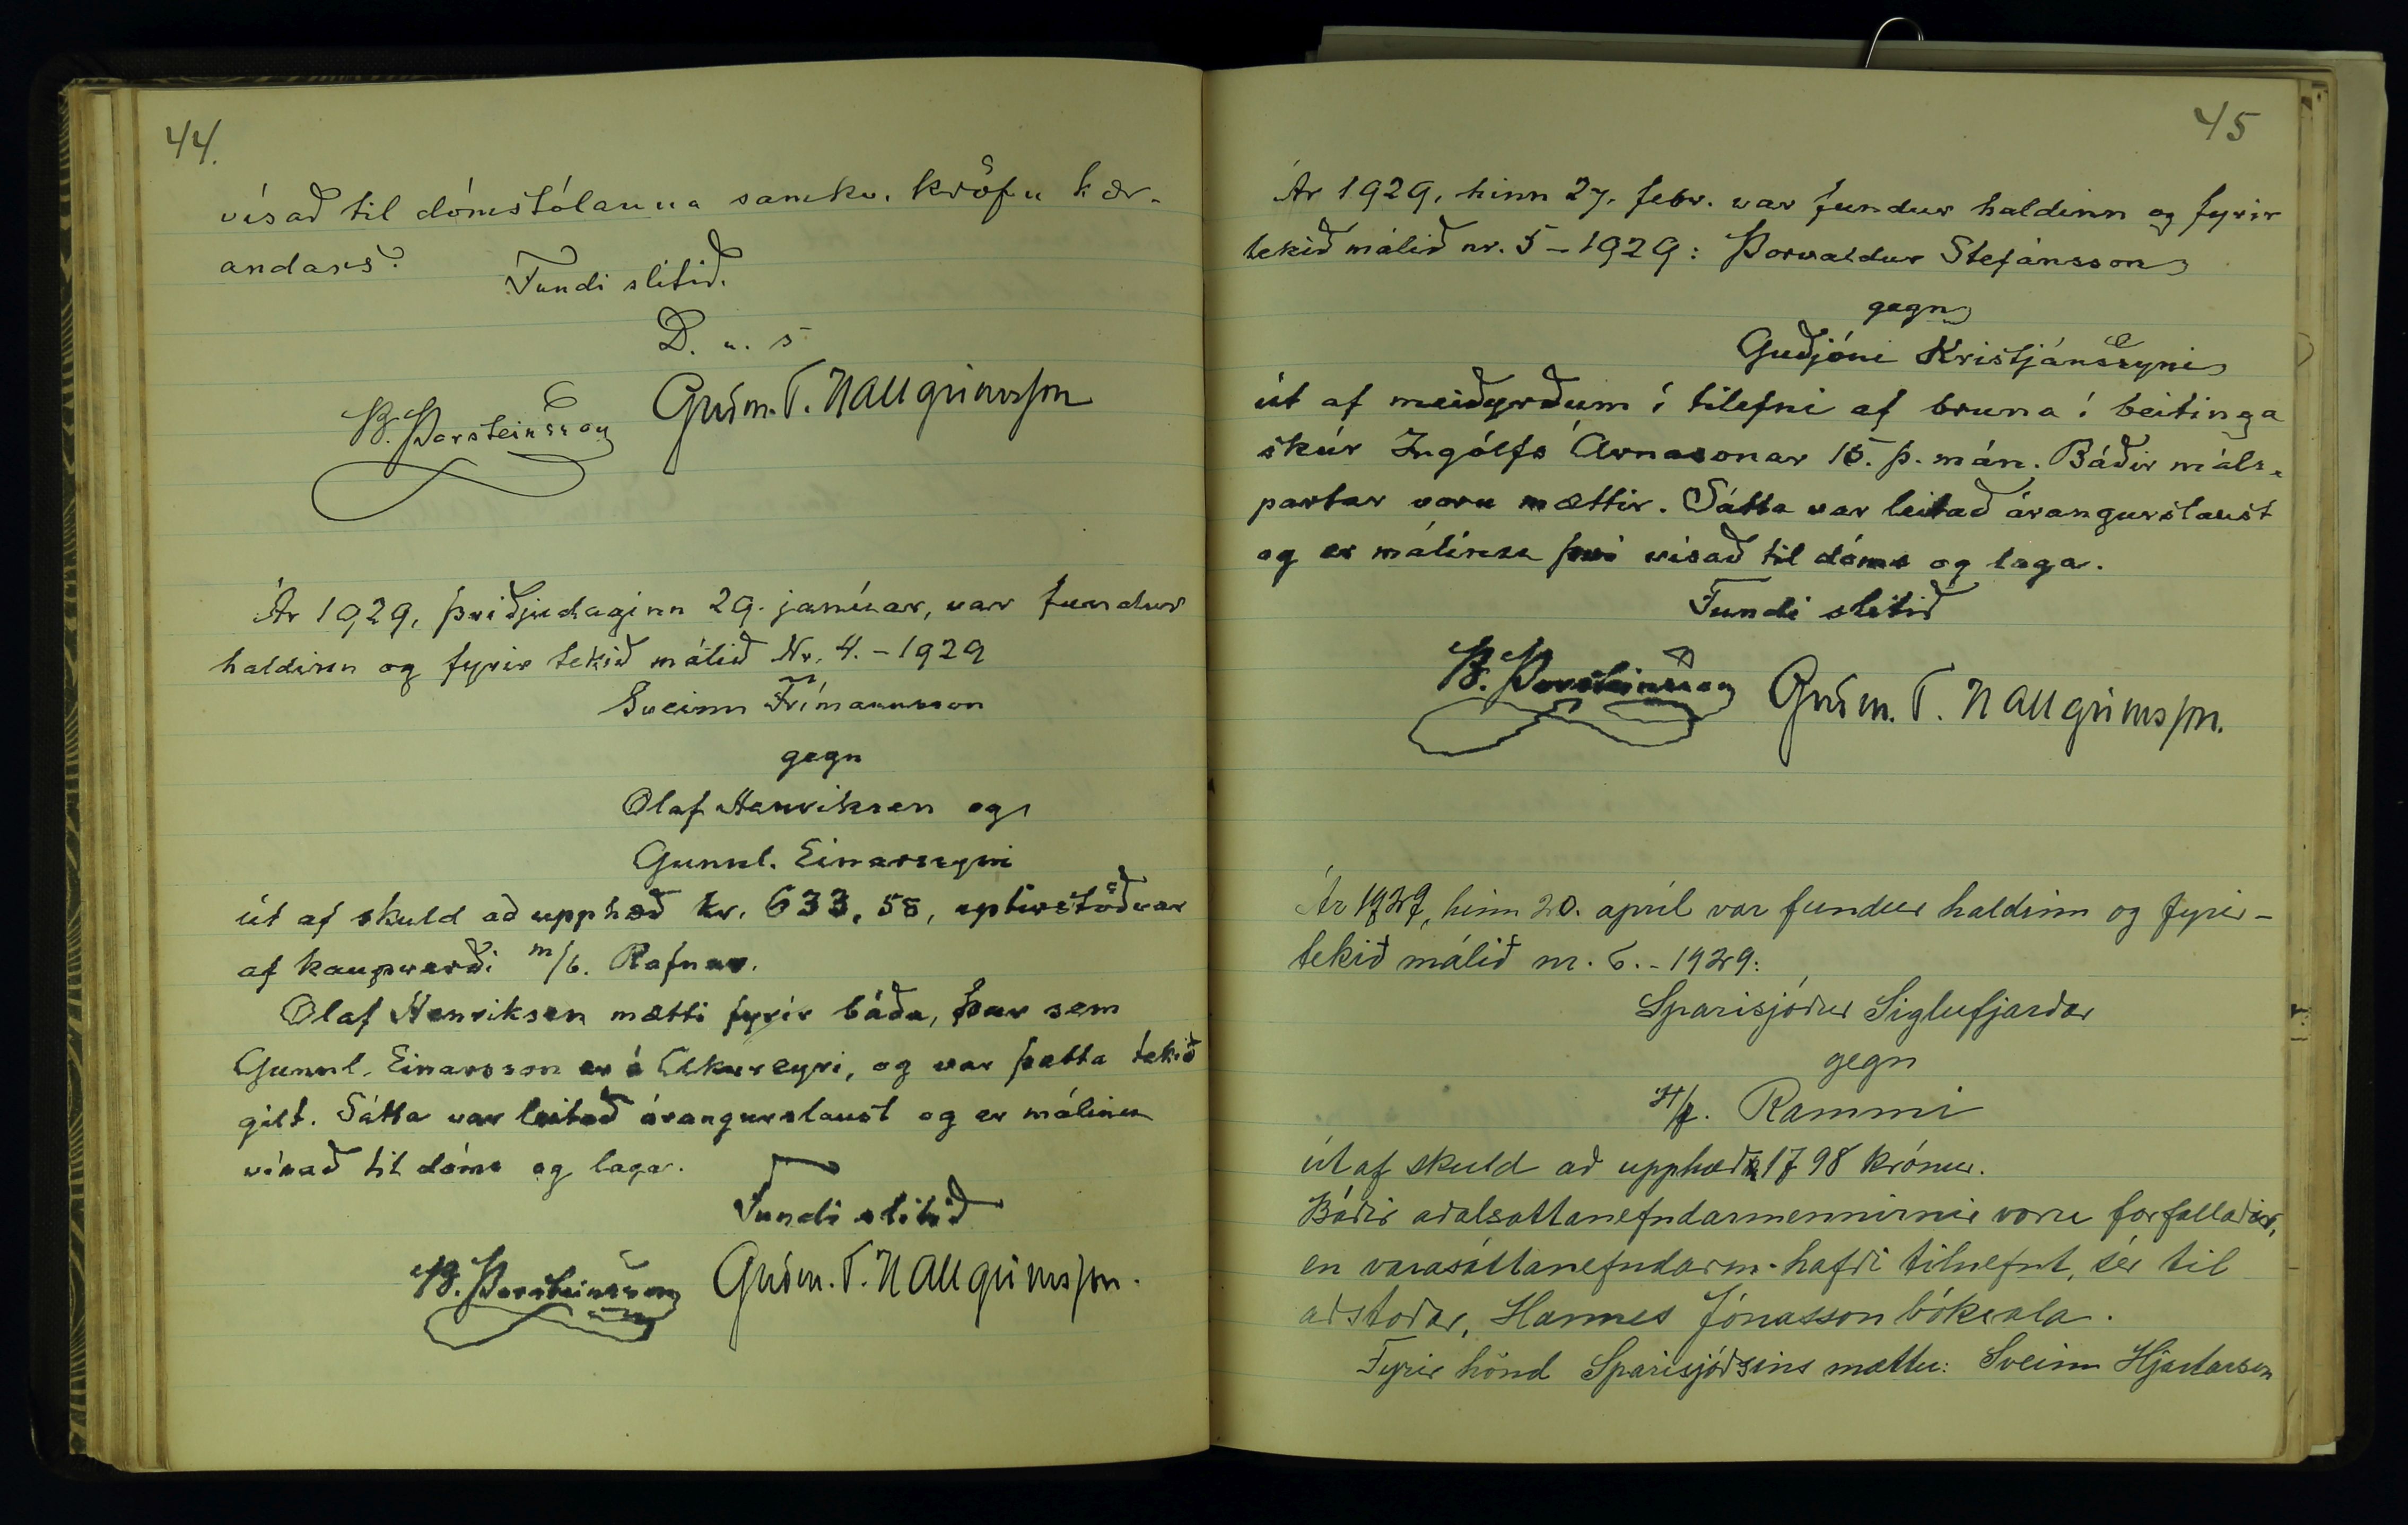 44.
vísað til dómstólanna samkv. kröfu kær-
andans.
Fundi slitið.
D. u. s
B. Þorsteinsson Guðm. T. Hallgrímsson
Ár 1929, þriðjudaginn 29. janúar, var fundur
haldinn og fyrir tekið málið Nr. 4.-1929
Sveinn Frímannsson
gegn
Olaf Henriksen og
Gunnl. Einarssyni
út af skuld að upphæð kr. 633,58, eptirstöðvar
af kaupverði m/b. Rafnar.
Olaf Henriksen mætti fyrir báða, þar sem
Gunnl. Einarsson er á Akureyri, og var þetta tekið
gilt. Sátta var leitað árangurslaust og er málinu
vísað til dóms og laga.
Fundi slitið
B. Þorsteinsson Guðm. T. Hallgrímsson.
45
Ár 1929, hinn 27. febr. var fundur haldinn og fyrir
tekið málið nr. 5-1929: Þorvaldur Stefánsson
gegn
Guðjóni Kristjánssyni
út af meiðyrðum í tilefni af bruna í beitinga
skúr Ingólfs Arnasonar 15. þ. mán. Báðir máls-
partar voru mættir. Sátta var leitað árangurslaust
og er málinu því vísað til dóms og laga.
Fundi slitið
B. Þorsteinsson Guðm. T. Hallgrímsson.
Ár 1929, hinn 20. apríl var fundur haldinn og fyrir-
tekið málið nr. 6.-1929:
Sparisjóður Siglufjarðar
gegn
H/f. Rammi
út af skuld að upphæð 1798 krónur.
Báðir aðalsáttanefndarmennirnir voru forfallaðir,
en varasáttanefndarm. hafði tilnefnt, sér til
aðstoðar, Hannes Jónasson bóksala.
Fyrir hönd Sparisjóðsins mættu: Sveinn Hjartarson